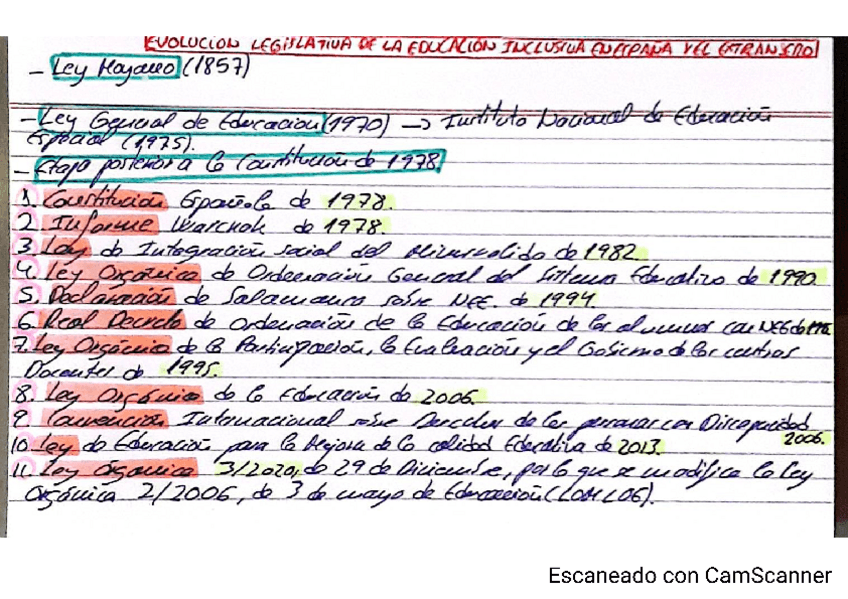 EVOLUCIÓN LEGISLATIVA DE LA EDUCACIÓN INCLUSIVA EN ESPAÑA Y EL EXTRANJERO
- Ley Moyano (1857)
- Ley General de Educación (1970) → Instituto Nacional de Educación
Especial (1975).
- Etapa posterior a la Constitución de 1978.
1. Constitución Española de 1978.
2. Informe Warnock de 1978.
3. Ley de Integración social del Minusválido de 1982.
4. Ley Orgánica de Ordenación General del Sistema Educativo de 1990.
5. Declaración de Salamanca sobre NEE. de 1994
6. Real Decreto de ordenación de la Educación de los alumnos con NEE de
7. Ley Orgánica de la Participación, la Evaluación y el Gobierno de los centros
Docentes de 1995.
8. Ley Orgánica de la Educación de 2006.
9. Convención Internacional sobre Derechos de las personas con Discapacidad
2006.
10. Ley de Educación para la Mejora de la calidad Educativa de 2013.
11. Ley Orgánica 3/2020, de 29 de Diciembre, por la que se modifica la Ley
Orgánica 2/2006, de 3 de mayo de Educación (LOMLOE).
Escaneado con CamScanner